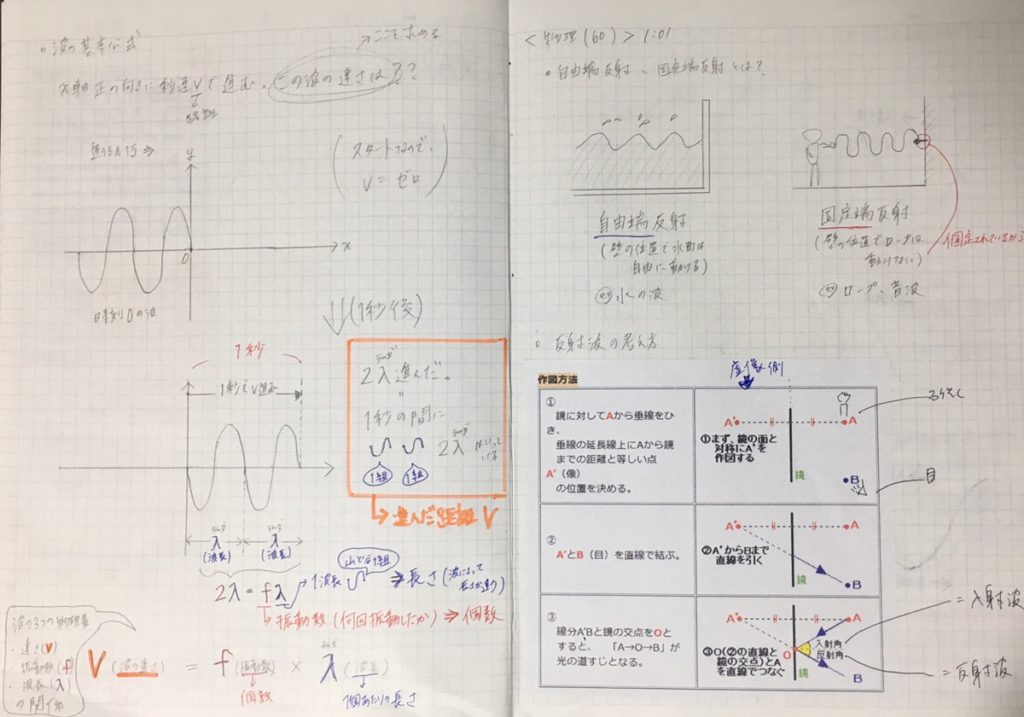 波の基本公式
→ここを求める
x軸正の向きに秒速Vで進む。この波の速さは？？
進行方向⇒
y
(スタートなので、
V=ゼロ)
x
0
時刻0の波
(1秒後)
1秒
1秒でV進む
ラムダ
2λ進んだ。
"
1秒の間に
ラムダ
2λ
はいっている
1組
1組
→進んだ距離V
ラムダ
λ
(波長)
ラムダ
λ
(波長)
2λ=fλ
1波長
山と谷1組
⇒長さ(波によって長さが違う)
→振動数(何回振動したか)⇒個数
波の3つの物理量
・速さ(V)
・振動数(f)
・波長(λ)
の関係
V(波の速さ)=f(振動数)×λ(波長)
ラムダ
個数
1個あたりの長さ
<物理(60)>1:01
・自由端反射、固定端反射とは?
自由端反射
(壁の位置で水面は
自由に動ける)
水の波
固定端反射
(壁の位置でロープは
動けない)
固定されているから
ロープ、音波
反射波の考え方
虚像側
作図方法
①
鏡に対してAから垂線をひき、
垂線の延長線上にAから鏡
までの距離と等しい点
A'(像)
の位置を決める。
A'
A
①まず、鏡の面と
対称にA'を
作図する
鏡
B
ろうそく
目
②
A'とB(目)を直線で結ぶ。
A'
A
②A'からBまで
直線を引く
鏡
B
③
線分A'Bと鏡の交点をOと
すると、「A→O→B」が
光の道すじとなる。
A'
A
O
入射角
反射角
③O(②の直線と
鏡の交点)とA
を直線でつなぐ
鏡
B
=入射波
=反射波